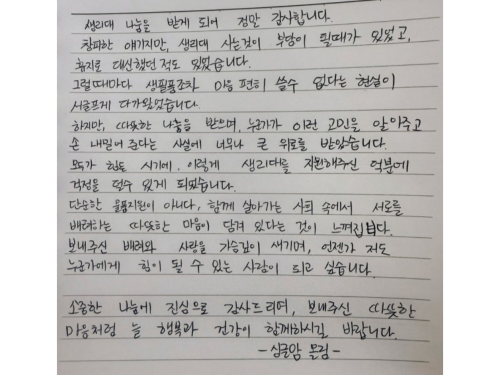 생리대 나눔을 받게 되어 정말 감사합니다.
창피한 얘기지만, 생리대 사는것이 부담이 될때가 있었고,
휴지로 대신했던 적도 있었습니다.
그럴때마다 생필품조차 마음 편히 쓸수 없다는 현실이
서글프게 다가왔었습니다.
하지만, 따뜻한 나눔을 받으며, 누군가가 이런 고민을 알아주고
손 내밀어 준다는 사실에 너무나 큰 위로를 받았습니다.
모두가 힘든 시기에, 이렇게 생리대를 지원해주신 덕분에
걱정을 덜수 있게 되었습니다.
단순한 물품지원이 아니다, 함께 살아가는 사회 속에서 서로를
배려하는 따뜻한 마음이 담겨 있다는 것이 느껴집니다.
보내주신 배려와 사랑을 가슴깊이 새기며, 언젠가 저도
누군가에게 힘이 될 수 있는 사람이 되고 싶습니다.
소중한 나눔에 진심으로 감사드리며, 보내주신 따뜻한
마음처럼 늘 행복과 건강이 함께하시길 바랍니다.
- 싱글맘 올림 -